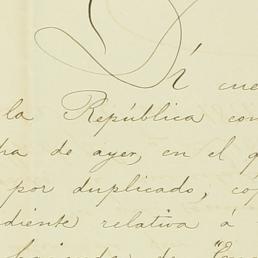 Dí cue
la República con
ha de ayer, en el q
por duplicado, cóp
diente relativa á